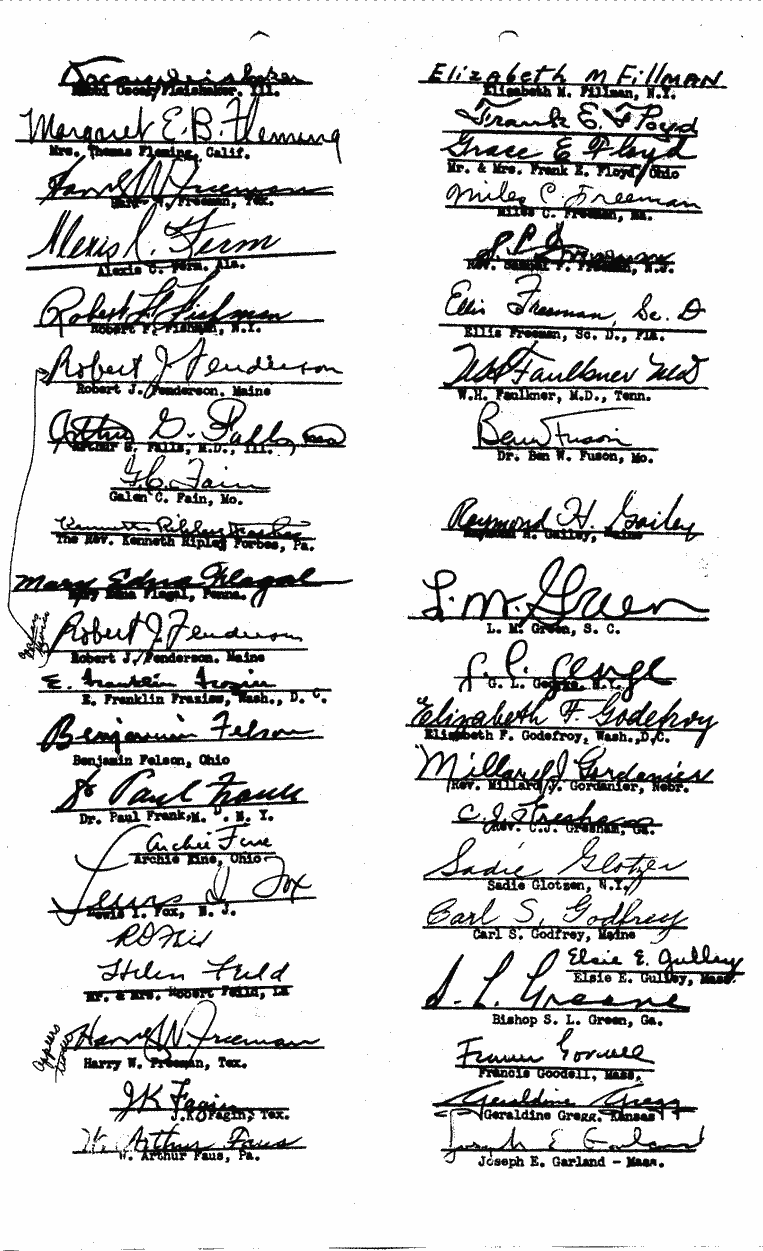 Rabbi Oscar Fleishaker, Ill.
Margaret E. B. Fleming
Mrs. Thomas Fleming, Calif.
Harry W. Freeman
Harry W. Freeman, Tex.
Alexis C. Ferm
Alexis C. Ferm, Ala.
Robert F. Fishman
Robert F. Fishman, N.Y.
Robert J. Fenderson
Robert J. Fenderson. Maine
Arthur G. Falls, MD
Arthur G. Falls, M.D., Ill.
G. C. Fain
Galen C. Fain, Mo.
Kenneth Ripley Forbes
The Rev. Kenneth Ripley Forbes, Pa.
Mary Edna Flegal
Mary Edna Flegal, Penna.
Robert J. Fenderson
Robert J. Fenderson. Maine
E. Franklin Frazier
E. Franklin Frazier, Wash., D. C.
Benjamin Felson
Benjamin Felson, Ohio
Dr Paul Frank
Dr. Paul Frank, M. D. N. Y.
Archie Fine
Archie Fine, Ohio
Lewis I Fox
Lewis I. Fox, N. J.
Helen Feild
Mr. & Mrs. Robert Feild, LA
appears twice
Harry W. Freeman
Harry W. Freeman, Tex.
JK Fagin
J.K. Fagin, Tex.
W. Arthur Faus
W. Arthur Faus, Pa.
Elizabeth M Fillman
Elizabeth M. Fillman, N.Y.
Frank E. Floyd
Grace E Floyd
Mr. & Mrs. Frank E. Floyd, Ohio
Miles C. Freeman
Miles C. Freeman, Ma.
Rev. Samuel F. Freeman, N.J.
Ellis Freeman, Sc. D
Ellis Freeman, Sc. D., Fla.
WH Faulkner MD
W.H. Faulkner, M.D., Tenn.
Ben W Fuson
Dr. Ben W. Fuson, Mo.
Raymond H. Gailey
Raymond H. Gailey, Maine
L. M. Green
L. M. Green, S. C.
G. L. George
G. L. George, N.Y.
Elizabeth F. Godefroy
Elizabeth F. Godefroy, Wash., D.C.
Millard J. Gordanier
Rev. Millard J. Gordanier, Nebr.
C. J. Gresham
Rev. C.J. Gresham, Ga.
Sadie Glotzer
Sadie Glotzen, N.Y.
Carl S. Godfrey
Carl S. Godfrey, Maine
Elsie E. Gulley
Elsie E. Gulley, Mass.
S. L. Greene
Bishop S. L. Green, Ga.
Francis Goodell
Francis Goodell, Mass.
Geraldine Gregg
Geraldine Gregg. Kansas
Joseph E Garland
Joseph E. Garland - Mass.